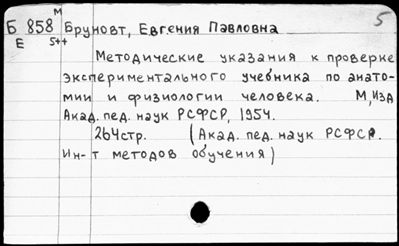 М 5
Б 858 Бруновт, Евгения Павловна
Е 5++
Методические указания к проверке
экспериментального учебника по анато-
мии и физиологии человека. М, Изд
Акад. пед. наук РСФСР, 1954.
264стр. (Акад. пед. наук РСФСР.
Ин-т методов обучения)